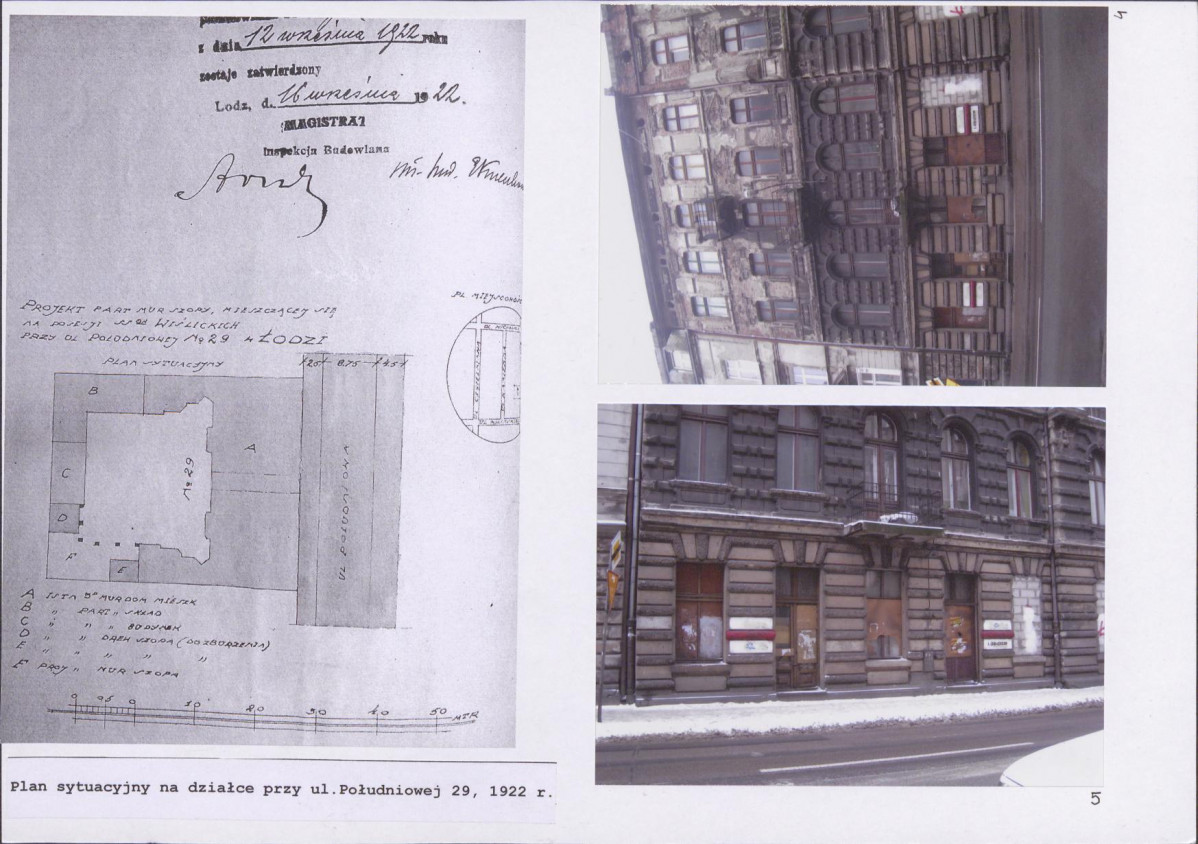 z dnia 12 września 1922 roku
zostaje zatwierdzony
Lodz, d. 16 września 1922.
MAGISTRAT
Inspekcja Budowlana
PROJEKT PART MUR SZOPY, MIESZCZĄCEJ SIĘ
NA POSESJI WIŚLICKICH
PRZY UL POŁUDNIOWEJ № 29 W ŁODZI
PLAN SYTUACYJNY
2.5 8.75 4.5
B
A
C
№ 29
D
UL POŁUDNIOWA
F
E
A ISTN MUR DOM MIESZK
B " PART " SKŁAD
C " " " BUDYNEK
D " " DREW SZOPA (DO ZBURZENIA)
E " " " "
F PROJ " MUR SZOPA
0 05 0 10 20 30 40 50 MTR
Plan sytuacyjny na działce przy ul.Południowej 29, 1922 r.
4
5